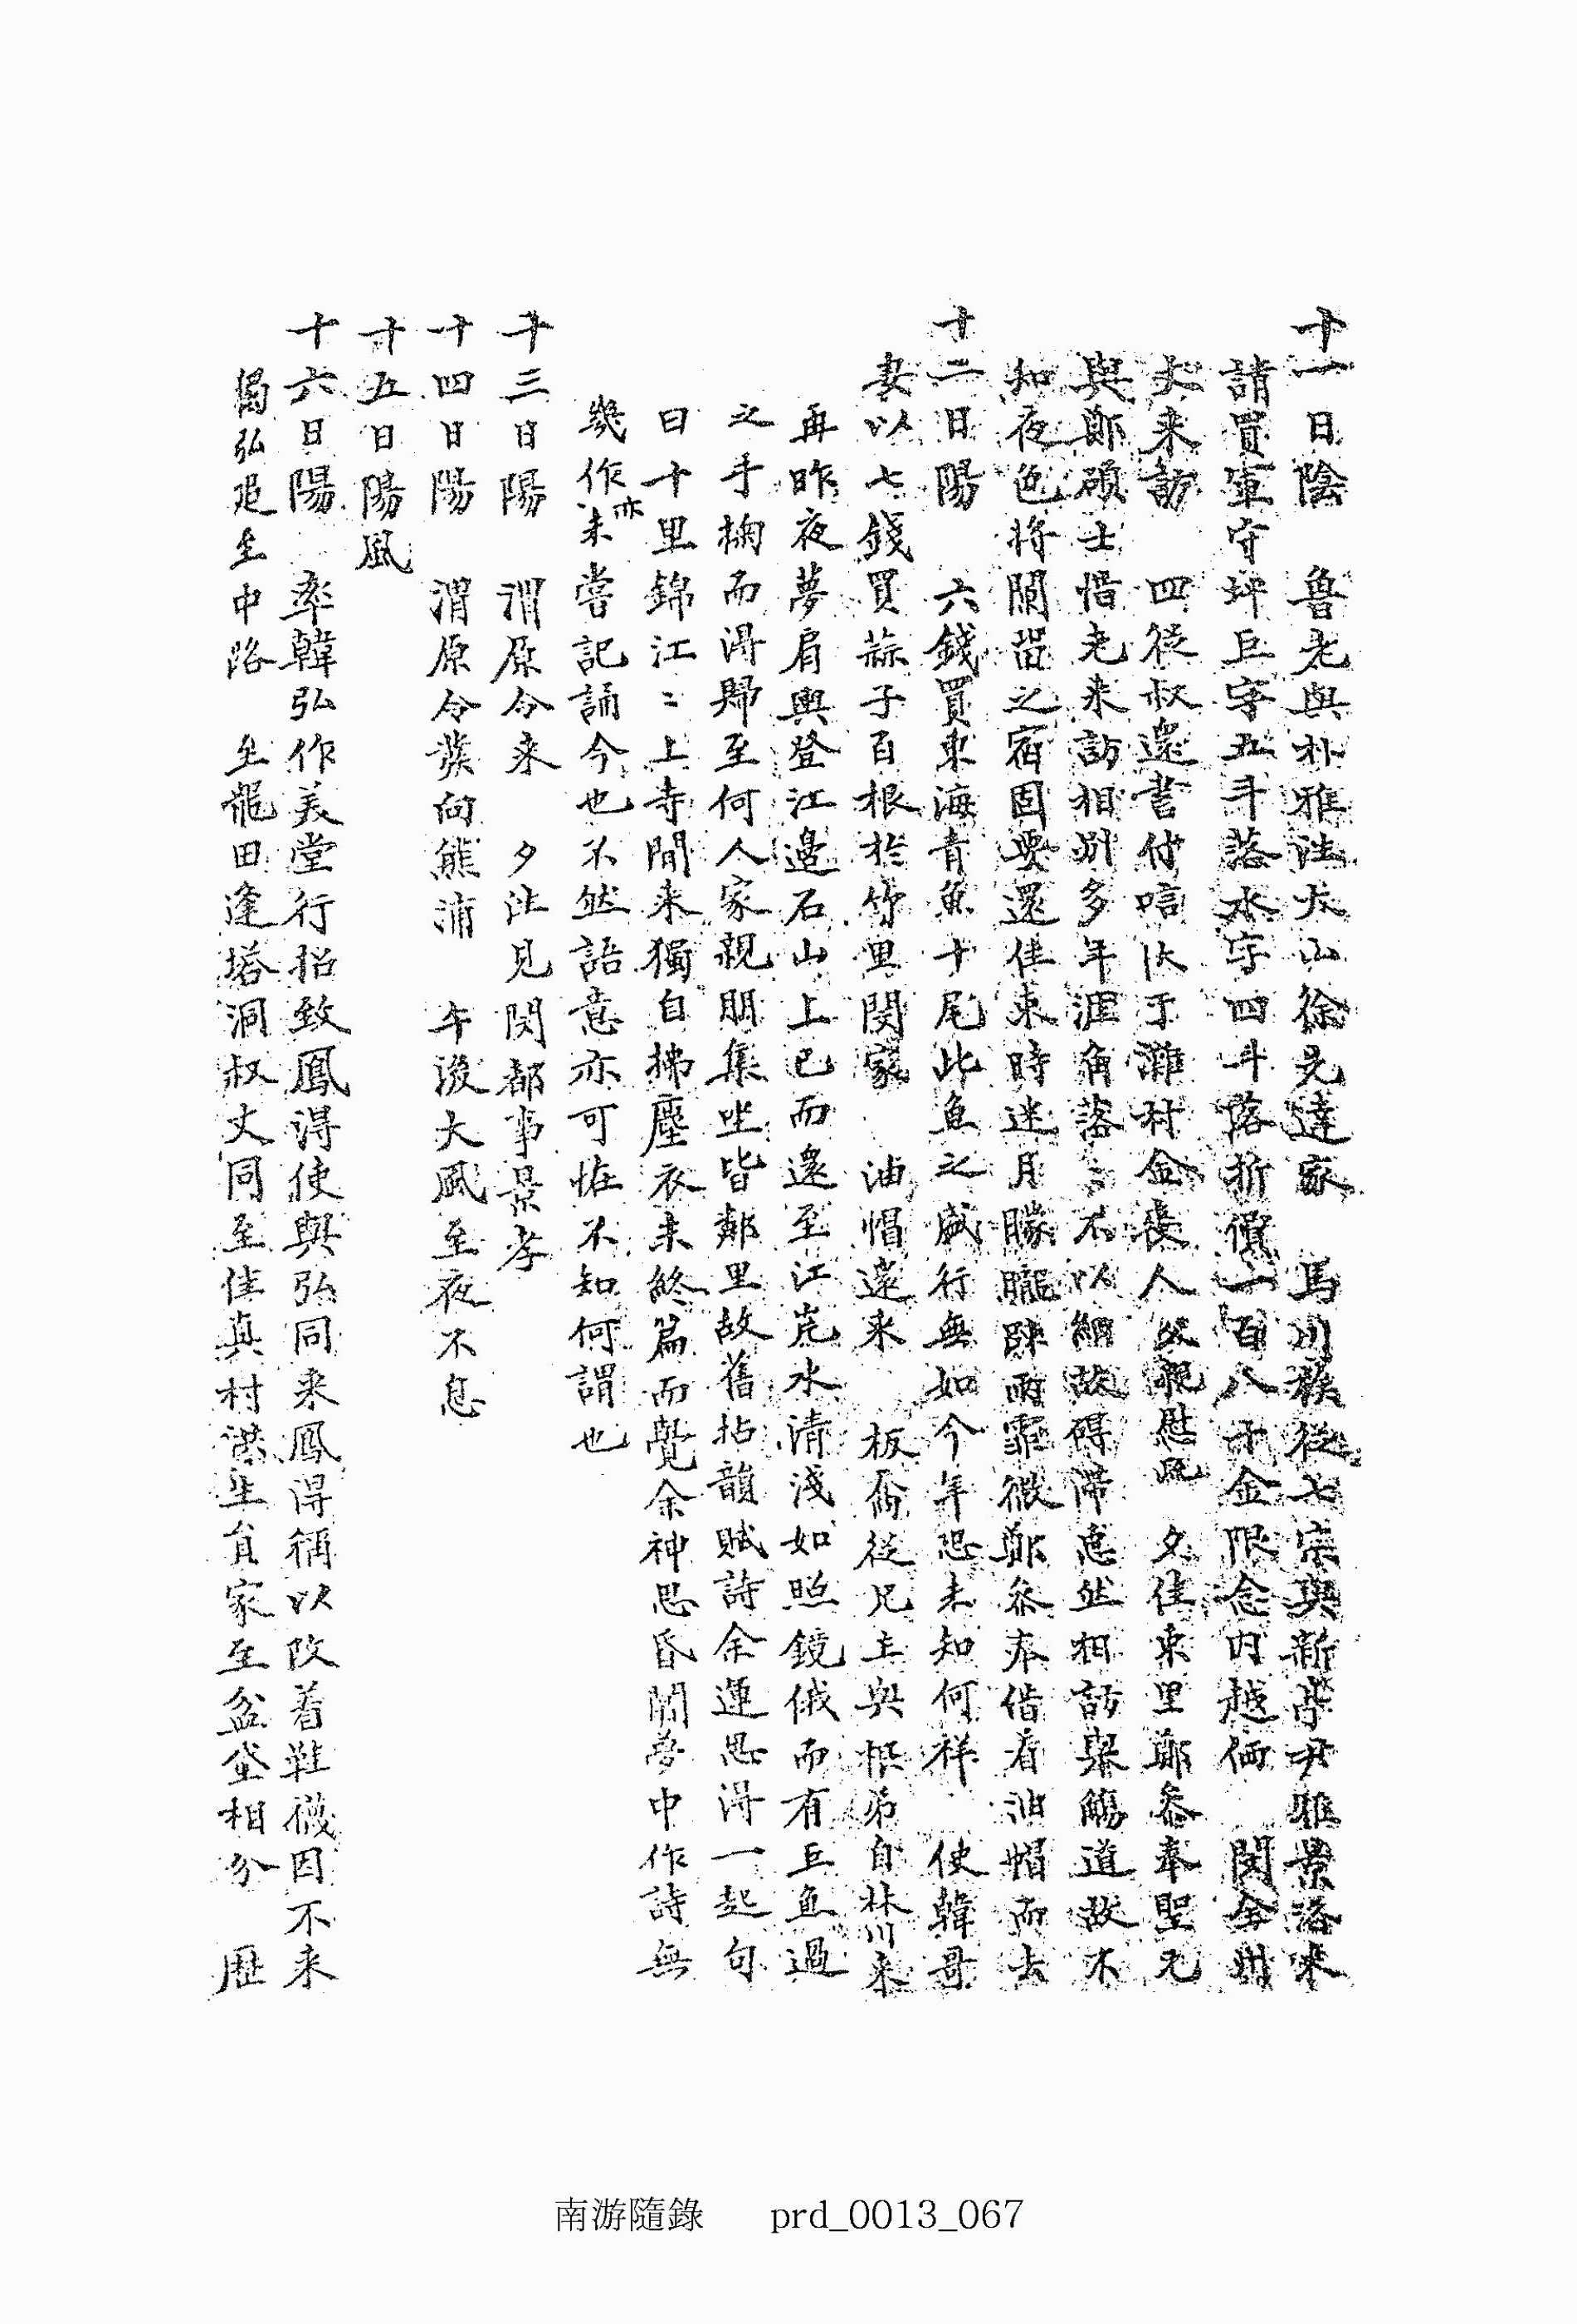 十一日陰 魯老與朴雅往大山徐先達家 馬川族從七宗與新亭尹雅景洛來
請買軍守坪巨字五斗落水字四斗落折價一百八十金限念內越価 閔金川
丈來訪 四從叔還書付唁伏于灘村金喪人 父親慰疏 夕往東里鄭叅奉聖元
與鄭碩士惜老來訪相別多年涯角落〻不以細故碍滯惠然相訪與觴道故不
知夜色將闌留之宿固要還佳東時迷月朦朧肆雨霏微鄭叅奉借着油帽而去
十二日陽 六錢買東海青魚十尾此魚之盛行無如今年恐未知何祥 使韓哥
妻以七錢買蒜子百根於竹里閔家 油帽還來 板喬從兄主與根弟自林川來
再昨夜夢肩輿登江邊石山上已而還至江岸水清淺如照鏡俄而有巨魚過
之手掬而得歸至何人家親朋集坐皆鄰里故舊拈韻賦詩余運思得一起句
曰十里錦江〻上寺閒來獨自拂塵衣未終篇而覺余神思昏閙夢中作詩無
幾作亦未嘗記誦今也不然詣意亦可恠不知何謂也
十三日陽 渭原令來 夕往見閔都事景孝
十四日陽 渭原令發向熊浦 午後大風至夜不息
十五日陽風
十六日陽 率韓弘作美堂行招致鳳得使與弘同來鳳得稱以改着鞋襪因不來
獨弘追至中路 至龍田逢塔洞叔丈同至佳真村洪生員家至盆垈相分 歷